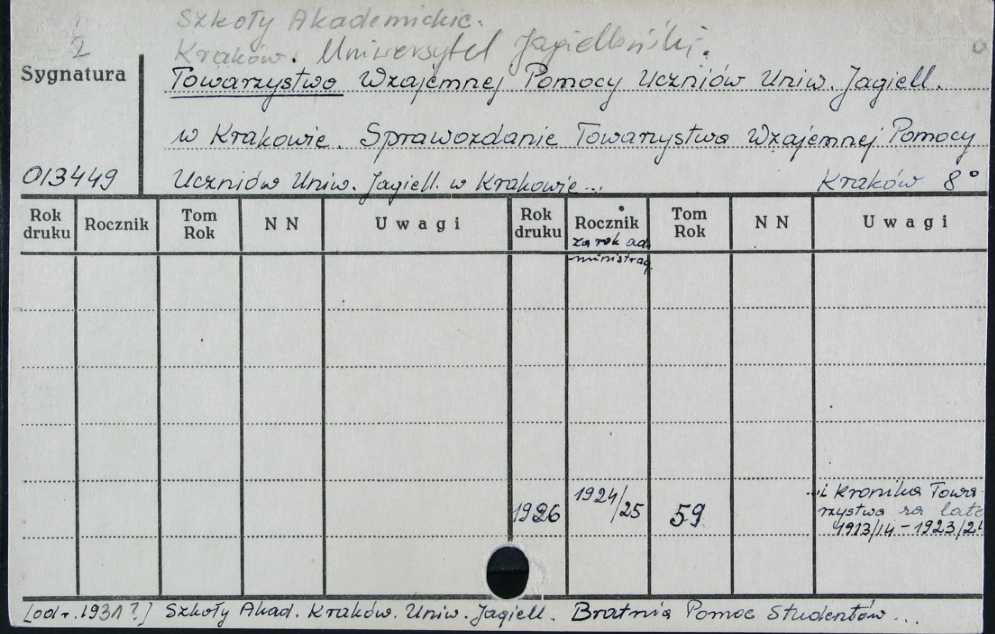 Szkoły Akademickie.
2
Kraków. Uniwersytet Jagielloński.
Sygnatura
Towarzystwo Wzajemnej Pomocy Uczniów Uniw. Jagiell.
w Krakowie. Sprawozdanie Towarzystwa Wzajemnej Pomocy
013449
Uczniów Uniw. Jagiell. w Krakowie... Kraków 8°
Rok druku Rocznik Tom Rok NN Uwagi Rok druku Rocznik Tom Rok NN Uwagi
za rok ad
ministrac.
1926 1924/25 59 ..i Kronika Towa-
rzystwa za lata
1913/14-1923/24
[od r. 1931?] Szkoły Akad. Kraków. Uniw. Jagiell. Bratnia Pomoc Studentów...